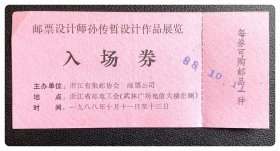 邮票设计师孙传哲设计作品展览
入场券
主办单位:浙江省集邮协会 邮票公司
地点:浙江省邮电工会(武林广场电信大楼左侧)
时间:一九八八年十月十一日至十三日
88.10.11
每券可购邮品一种